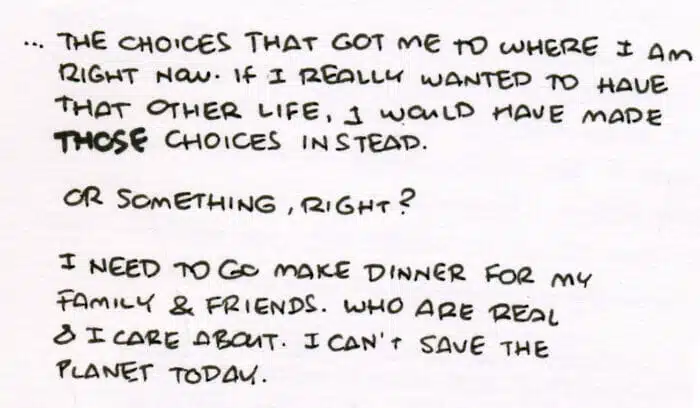 ... THE CHOICES THAT GOT ME TO WHERE I AM
RIGHT NOW. IF I REALLY WANTED TO HAVE
THAT OTHER LIFE, I WOULD HAVE MADE
THOSE CHOICES INSTEAD.
OR SOMETHING, RIGHT?
I NEED TO GO MAKE DINNER FOR MY
FAMILY & FRIENDS. WHO ARE REAL
& I CARE ABOUT. I CAN'T SAVE THE
PLANET TODAY.